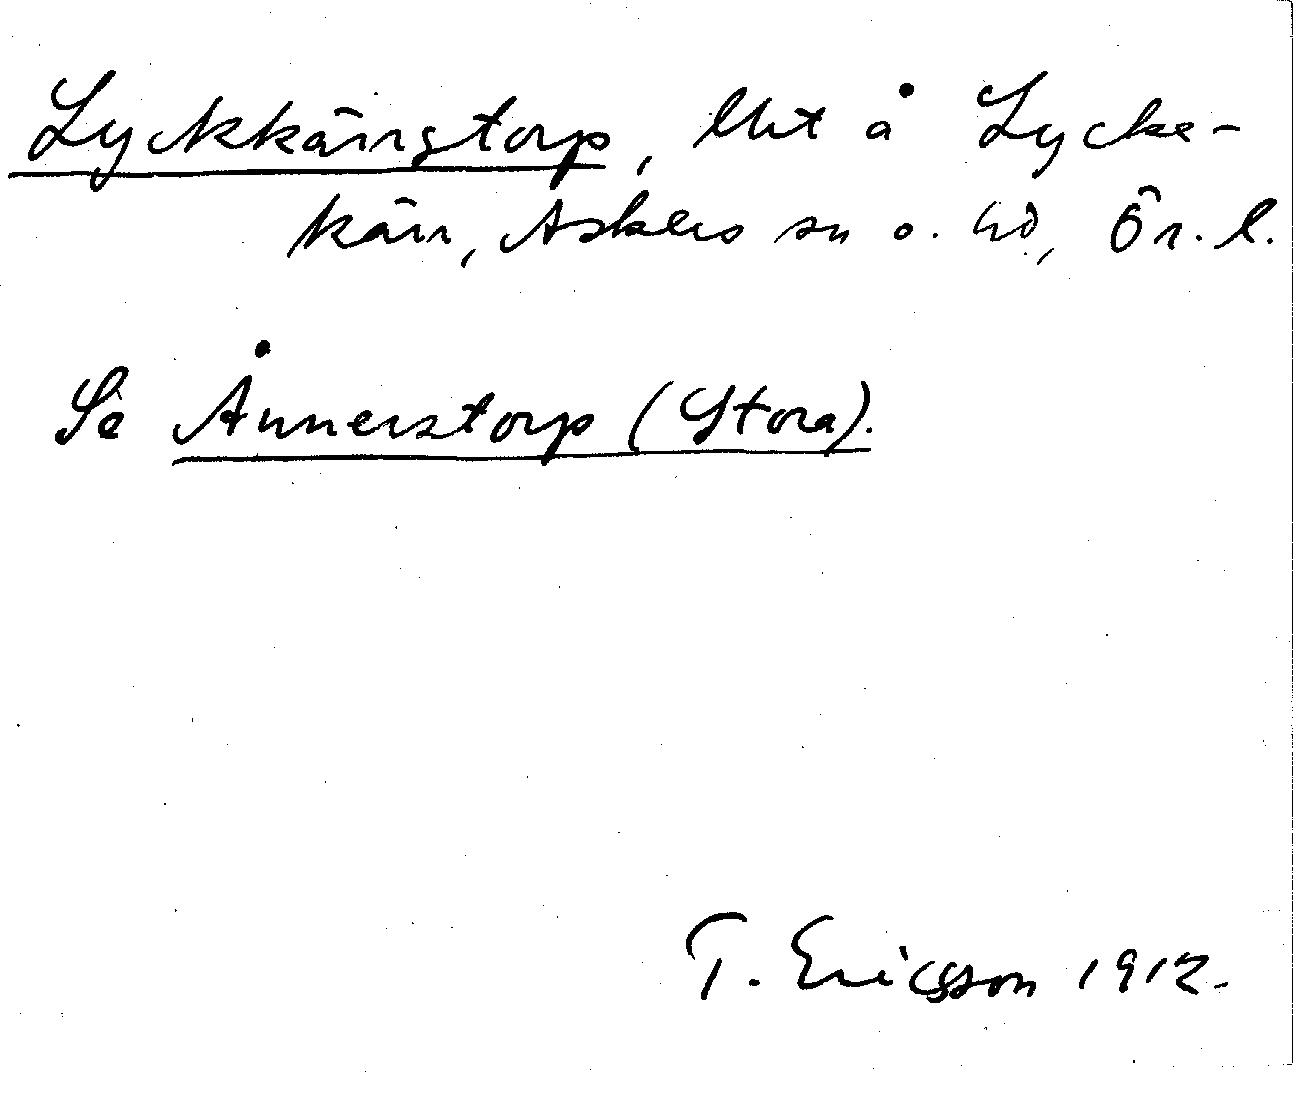 Lyckkärrstorp, lht å Lycke-
kärr, Askers sn o. hd, Ör. l.
Se Ånnerstorp (Stora).
T. Ericsson 1912.